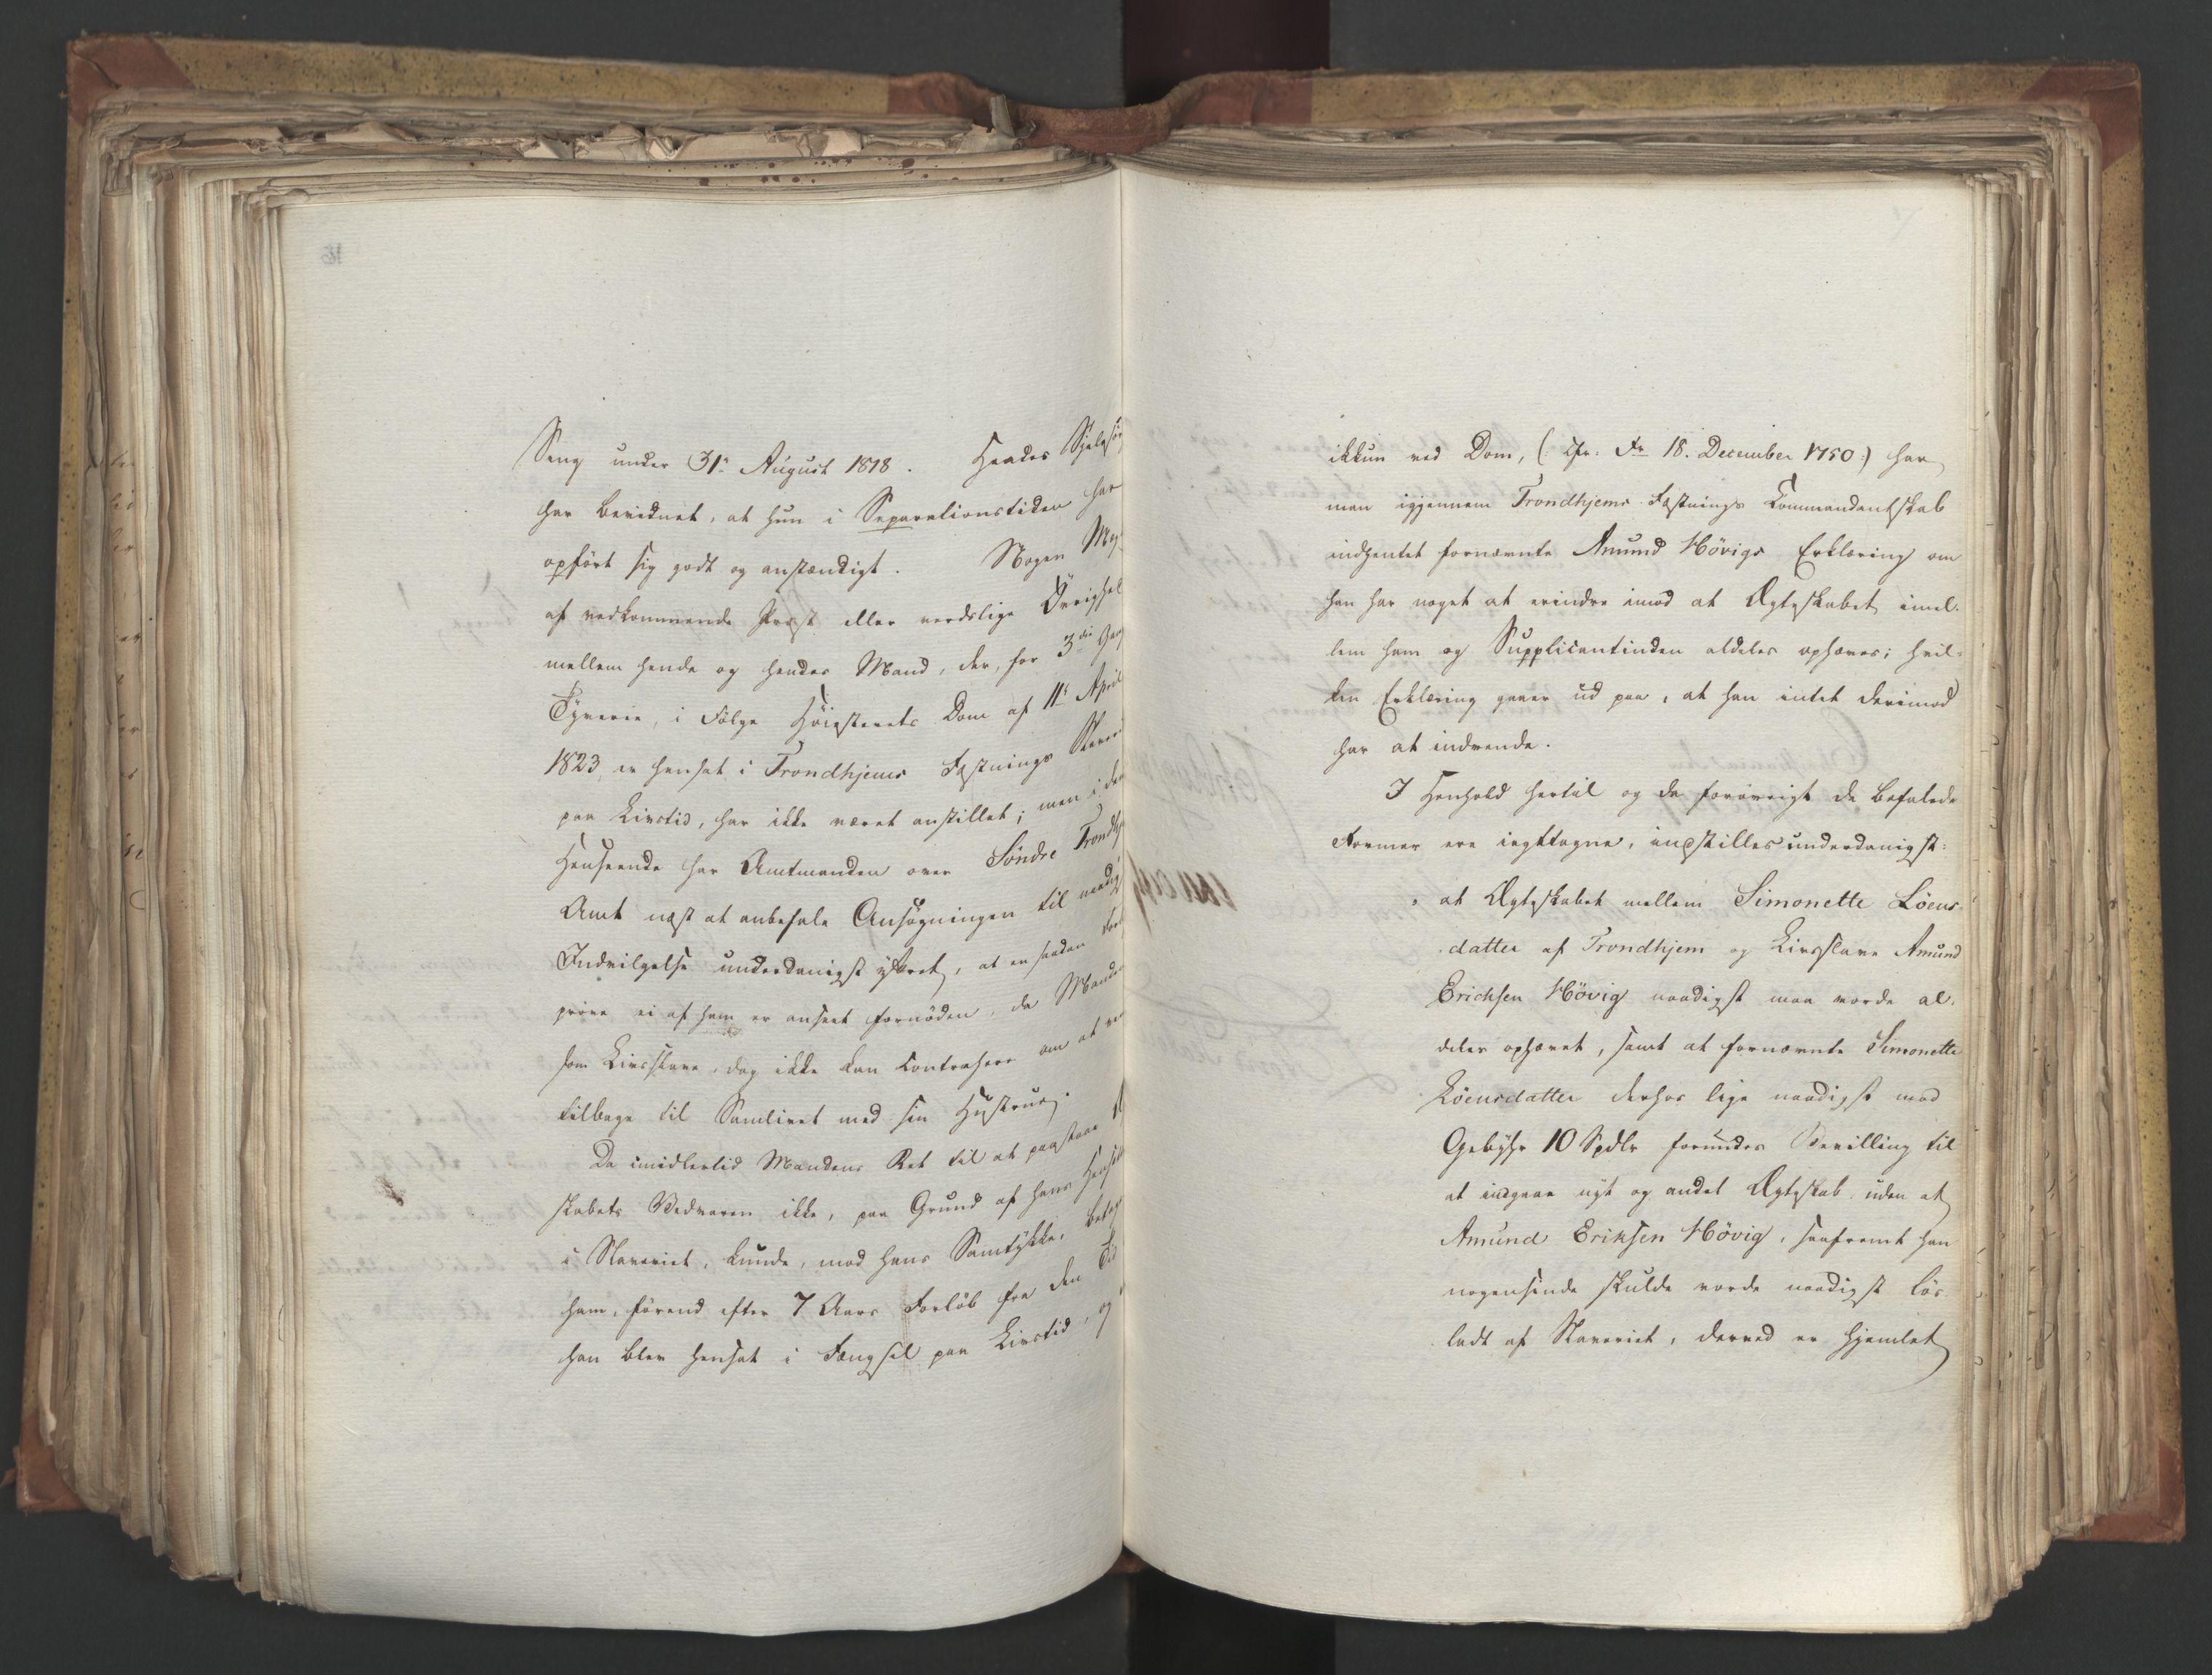 Seng under 31. August 1818. Hendes Sjelesör
har bevidnet, at hun i Separationstiden har
opført sig godt og anstændigt. Nogen Mæg
af vedkommende Præst eller verdslige Övrighed
mellem hende og hendes Mand, der, for 3die Gang
Tyverie, i Følge Höiesterets Dom af 11te April
1823, er hensat i Trondhjems Fæstnings Slaveri
paa Livstid, har ikke været anstillet; men i den
Henseende har Amtmanden over Söndre Trondhj
Amt næst at anbefale Ansøgningen til naadig
Indvilgelse underdanigst yttret, at en saadan For
pröve ei af ham er anseet fornöden, da Manden
som Livsslave, dog ikke kan contrahere om at ve
tilbage til Samlivet med sin Hustrue.
Da imidlertid Mandens Ret til at paastaae
skabets Vedvaren ikke, paa Grund af hans Hensæt
i Slaveriet, kunde, mod hans Samtykke, betag
ham, förend efter 7 Aars Forlöb fra den Tid
han blev hensat i Fængsel paa Livstid, og
ikkun ved Dom, (cfr. Fr. 18. December 1750:) har
man igjennem Trondhjems Fæstnings Commandantskab
indhentet fornævnte Amund Hövigs Erklæring om
han har noget at erindre imod at Ægteskabet imel-
lem ham og Supplicantinden aldeles ophæves; hvil-
ken Erklæring gaaer ud paa, at han intet derimod
har at indvende.
I Henhold hertil og da forövrigt de befalede
Former ere iagttagne, indstilles underdanigst:
at Ægteskabet mellem Simonette Löens-
datter af Trondhjem og Livsslave Amund
Erichsen Hövig naadigst maa vorde al-
deles ophævet, samt at fornævnte Simonette
Löensdatter derhos lige naadigst mod
Gebyhr 10 Spdlr forundes Bevilling til
at indgaae nyt og andet Ægteskab, uden at
Amund Eriksen Hövig, saafremt han
nogensinde skulde vorde naadigst lös-
ladt af Slaveriet, derved er hjemlet